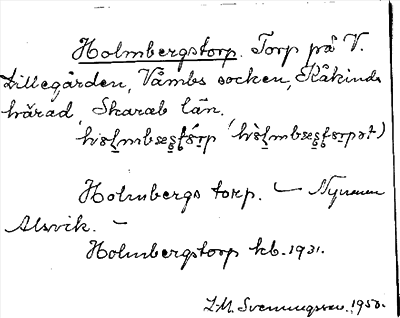 Holmbergstorp. Torp på V.
Lillegården, Våmbs socken, Kåkinds
härad, Skarab. län.
Holmbergs torp. — Nyman
Alsvik. —
Holmbergstorp kb. 1931.
J.M. Svenningsson, 1950.